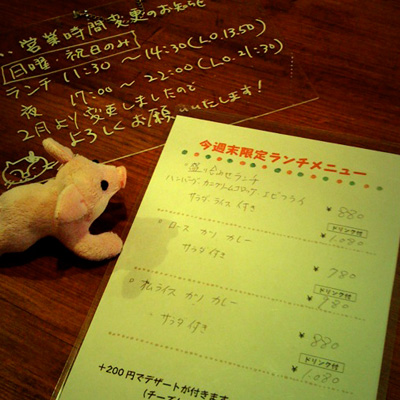 営業時間変更のお知らせ
日曜・祝日のみ
ランチ 11:30 〜 14:30 (L.O. 13:50)
夜 17:00 〜 22:00 (L.O. 21:30)
2月より変更しましたので
よろしくお願いいたします!
今週末限定ランチメニュー
盛り合わせランチ
ハンバーグ・カニクリームコロッケ・エビフライ
サラダ・ライス付き ¥880
ドリンク付
¥1,080
ロース カツ カレー
サラダ付き ¥780
ドリンク付
¥980
オムライス カツ カレー
サラダ付き ¥880
ドリンク付
¥1,080
+200円でデザートが付きます